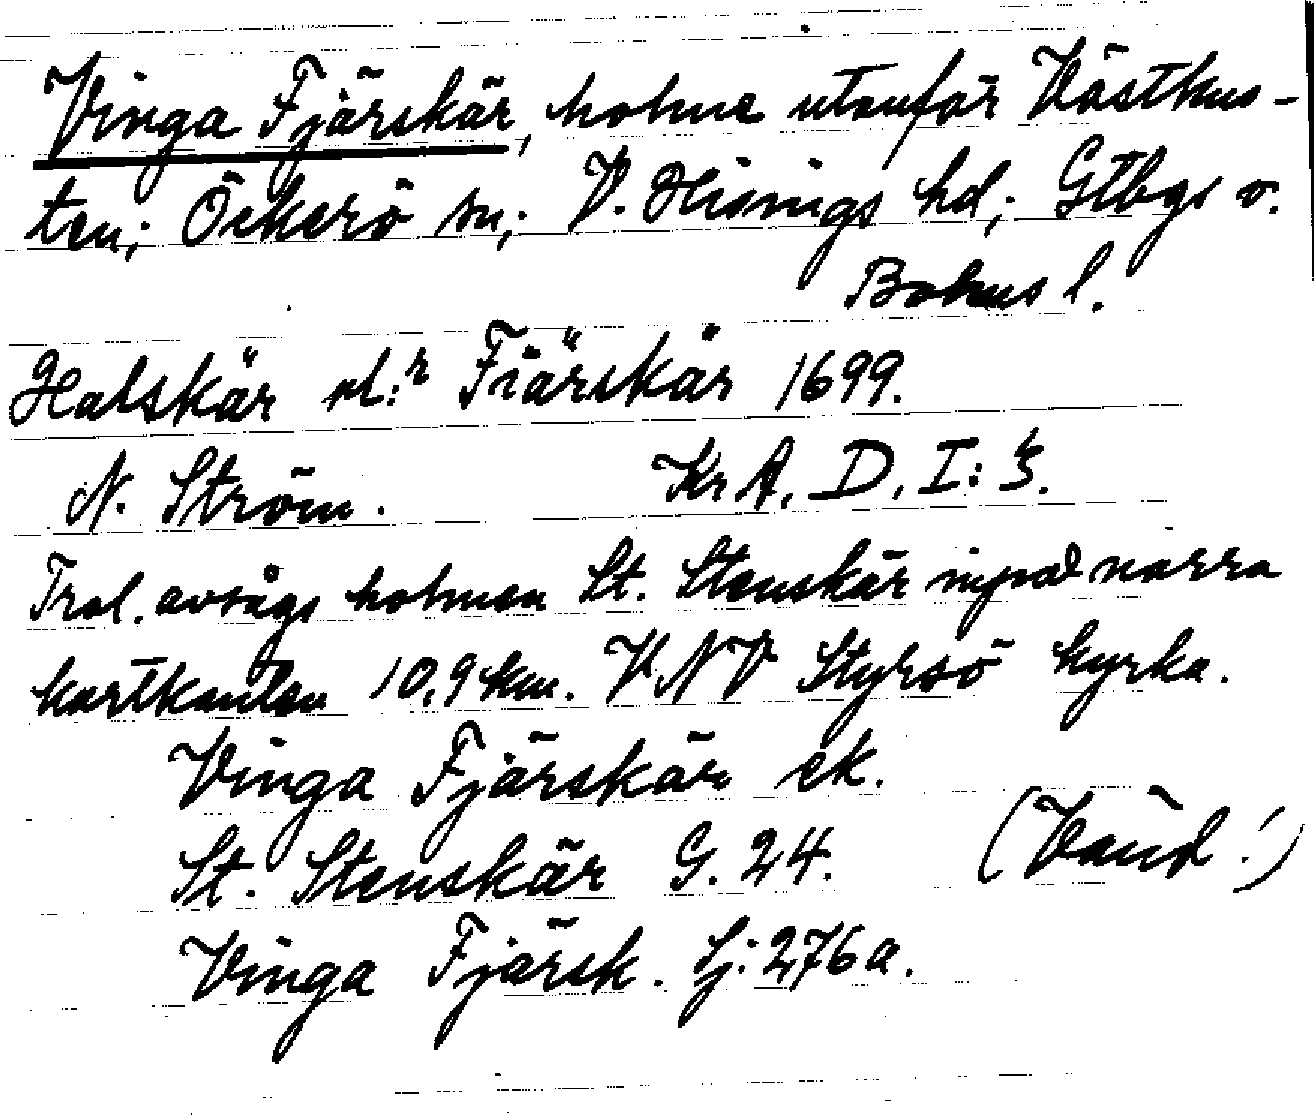 Vinga Fjärskär, holme utanför Västkus-
ten; Öckerö sn; V. Hisings hd; Gtbgs o.
Bohus l.
Halskär el:r Fiärskär 1699.
N. Ström. KrA, D, I: 3.
Trol. avsågs holmen St. Stenskär invid norra
kartkanten 10,9 km. VNV Styrsö kyrka.
Vinga Fjärskär ek.
St. Stenskär G. 24. (Vänd!)
Vinga Fjärsk. Sj: 276a.